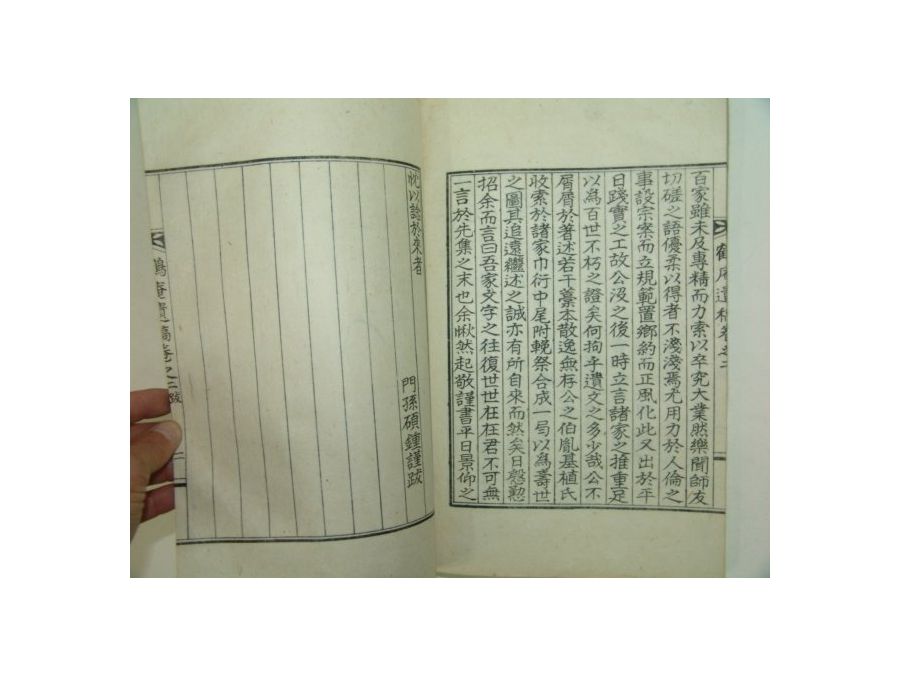 百家雖未及專精而力索以卒究大業然樂聞師友
切磋之語優柔以得者不淺淺焉尤用力於人倫之
事設宗案而立規範置鄕約而正風化此又出於平
日踐實之工故公沒之後一時立言諸家之推重足
以為百世不朽之證矣何拘乎遺文之多少哉公不
屑屑於著述若干藁本散逸無存公之伯胤基植氏
收索於諸家巾衍中尾附輓祭合成一局以為壽世
之圖其追遠繼述之誠亦有所自來而然矣日慇懃
招余而言曰吾家文字之往復世世在在君不可無
一言於先集之末也余愀然起敬謹書平日景仰之
忱以諗於來者
門孫碩鍾謹跋
鶴庵遺稿卷之二
鶴庵遺稿卷之二 跋